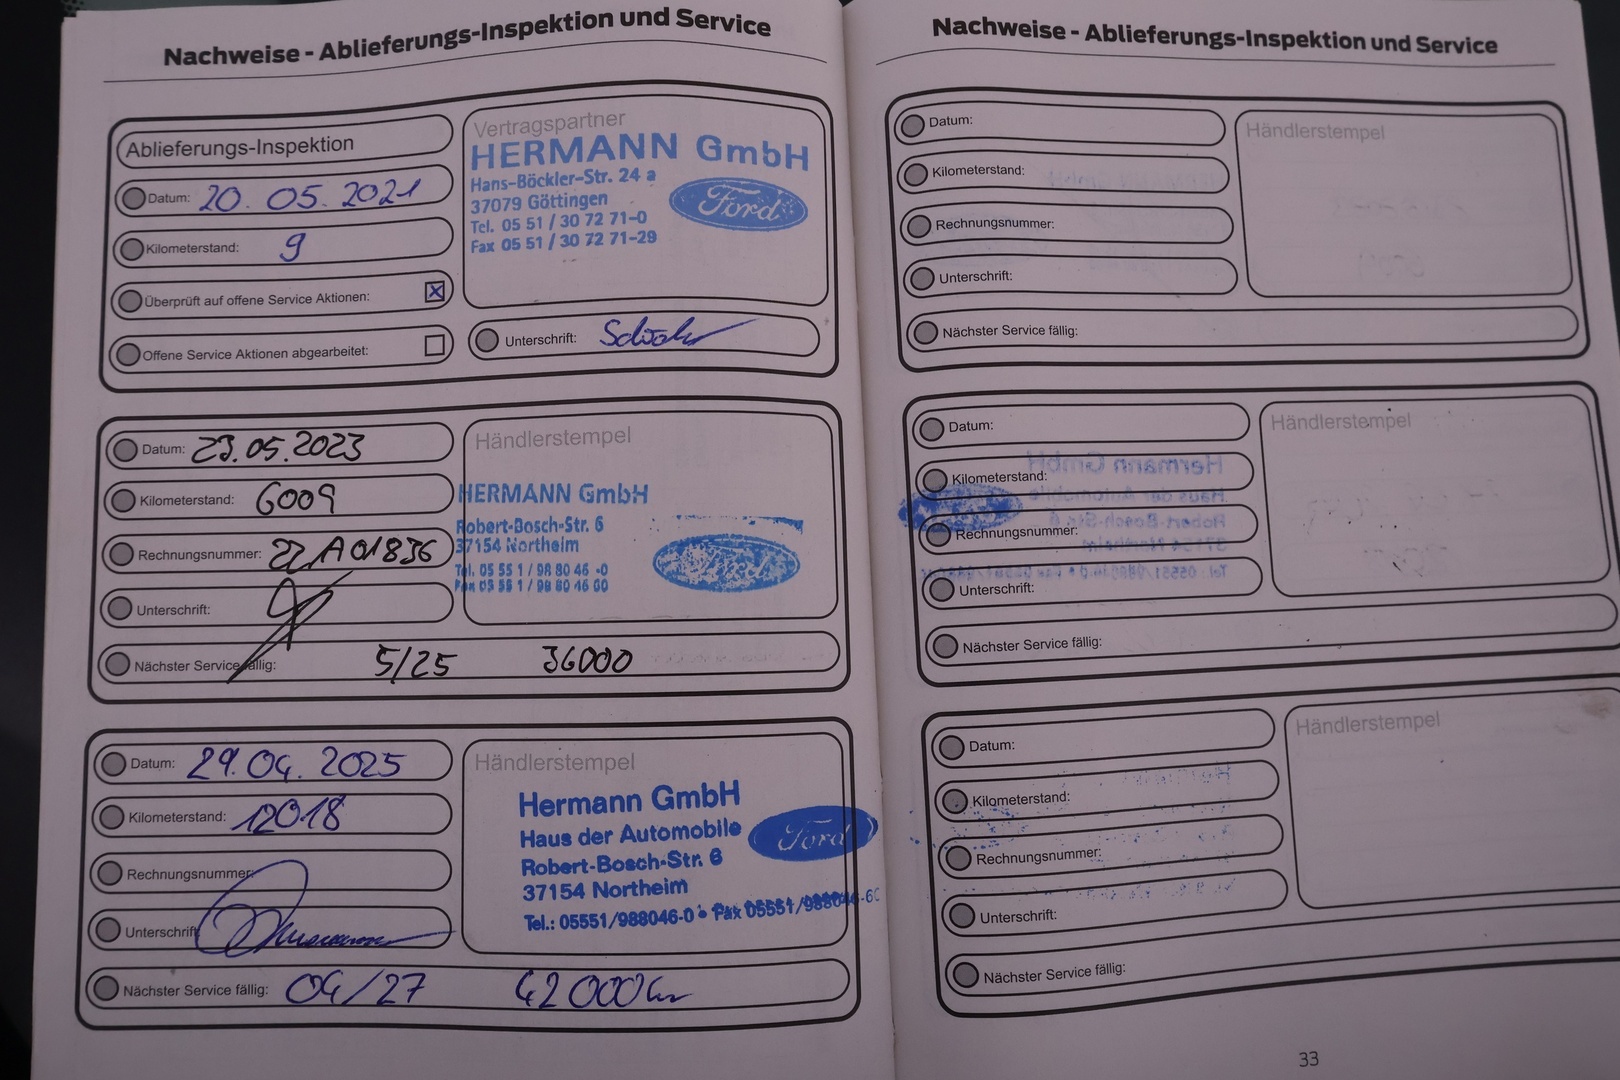 Nachweise - Ablieferungs-Inspektion und Service
Ablieferungs-Inspektion
Datum: 20.05.2021
Kilometerstand: 9
Überprüft auf offene Service Aktionen: ☒
Offene Service Aktionen abgearbeitet: ☐
Vertragspartner
HERMANN GmbH
Hans-Böckler-Str. 24 a
37079 Göttingen
Tel. 05 51 / 30 72 71-0
Fax 05 51 / 30 72 71-29
Ford
Unterschrift:
Datum: 23.05.2023
Kilometerstand: 6009
Rechnungsnummer: 22A01836
Unterschrift:
Händlerstempel
HERMANN GmbH
Robert-Bosch-Str. 6
37154 Northeim
Tel. 05 55 1 / 98 80 46 -0
Fax 05 55 1 / 98 80 46 60
Ford
Nächster Service fällig: 5/25 36000
Datum: 29.04.2025
Kilometerstand: 12018
Rechnungsnummer:
Unterschrift:
Händlerstempel
Hermann GmbH
Haus der Automobile
Robert-Bosch-Str. 6
37154 Northeim
Tel.: 05551/988046-0 • Fax 05551/988046-60
Ford
Nächster Service fällig: 04/27 42000km
Nachweise - Ablieferungs-Inspektion und Service
Datum:
Kilometerstand:
Rechnungsnummer:
Unterschrift:
Händlerstempel
Nächster Service fällig:
Datum:
Kilometerstand:
Rechnungsnummer:
Unterschrift:
Händlerstempel
Nächster Service fällig:
Datum:
Kilometerstand:
Rechnungsnummer:
Unterschrift:
Händlerstempel
Nächster Service fällig:
33